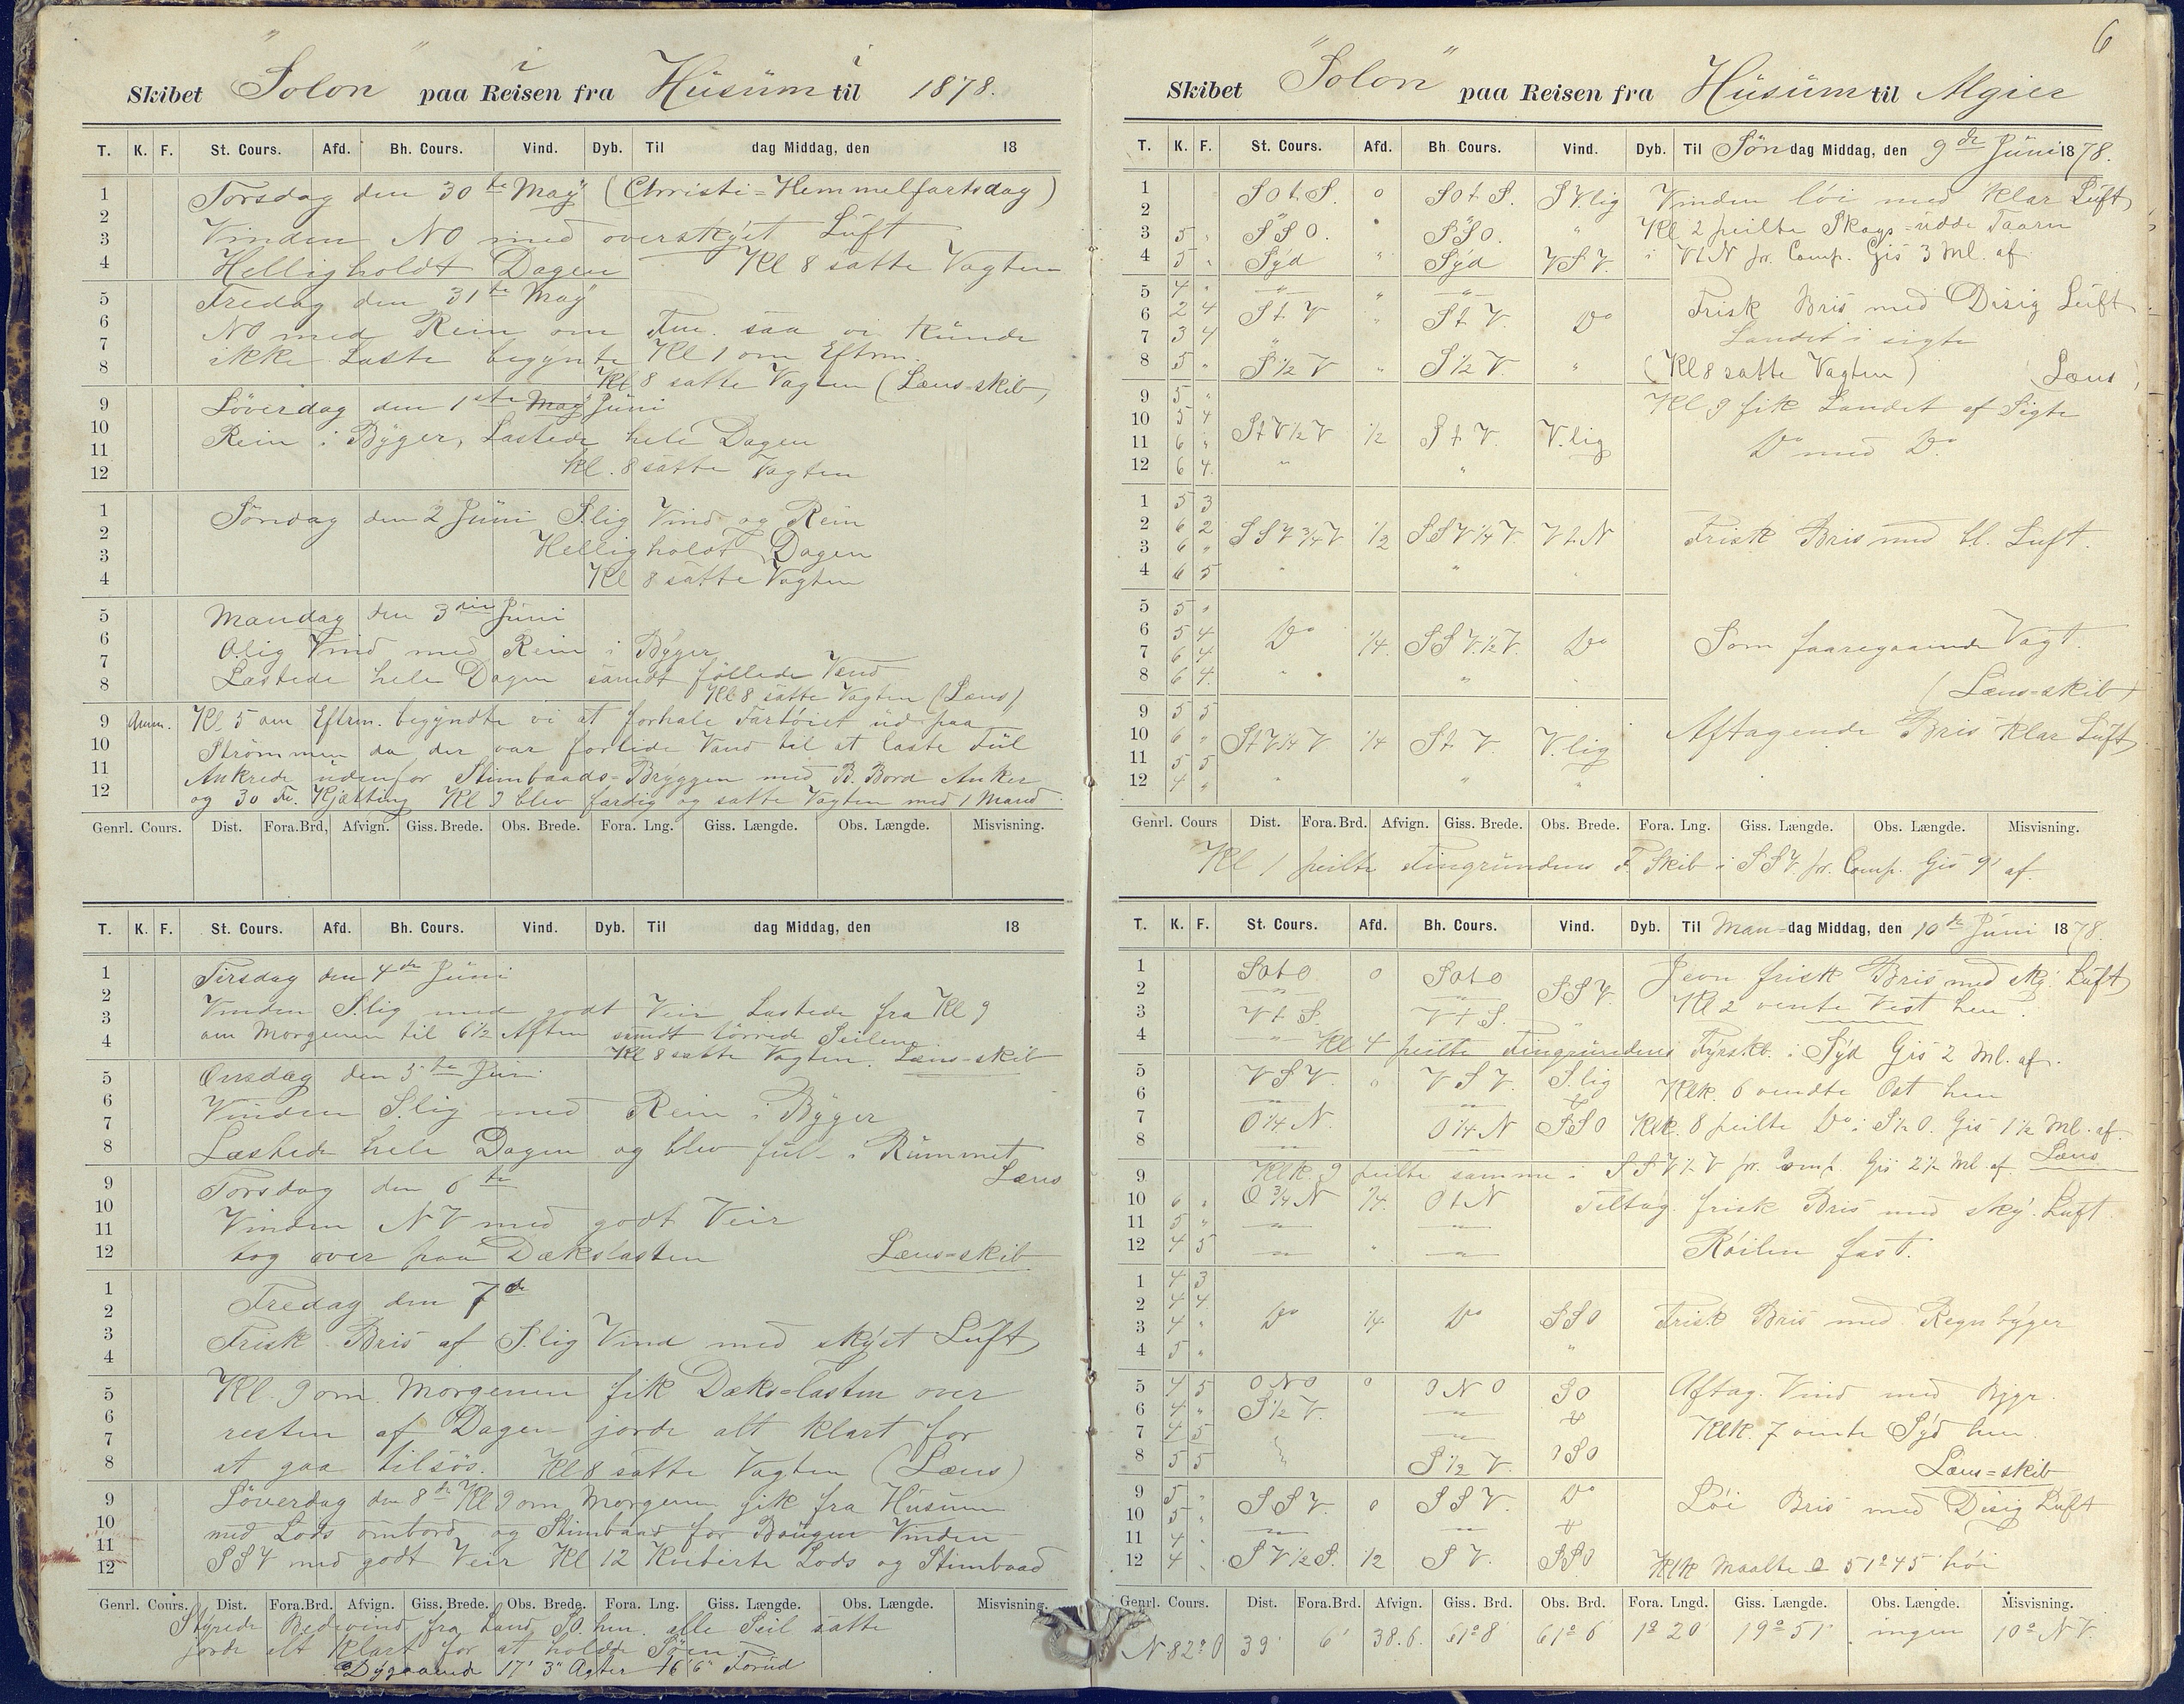 Skibet "Solon" i paa Reisen fra Hüsüm i til 1878.
T. K. F. St. Cours. Afd. Bh. Cours. Vind. Dyb. Til dag Middag, den 18
1 Torsdag den 30te May (Christi=Hemmelfartsdag)
2
3 Vinden NO med overskÿet Lüft
4 Helligholdt Dagen Kl 8 satte Vagten
5 Fredag den 31te May
6 NO med Rein om Fm. saa vi Kunde
7 ikke Laste begÿnte Kl 1 om Eftrm.
8 Kl 8 satte Vagten (Læns=skib)
9 Löverdag den 1ste May Jüni
10 Rein i Bÿger, Lastede hele Dagen
11
12 Kl. 8 satte Vagten
1 Söndag den 2 Jüni S.lig Vind og Rein
2
3 Helligholdt Dagen
4 Kl 8 satte Vagten
5 Mandag den 3die Jüni
6 O.lig Vind med Rein i Bÿger
7 Lastede hele Dagen samdt föllede Vand
8 Kl 8 satte Vagten (Læns)
9 Anm. Kl 5 om Eftrm. begÿndte vi at forhale Fartöiet üd paa
10 Strömmen da der var forlide Vand til at laste Fül
11 Ankrede üdenfor Stimbaads=Bryggen med B. Bord Anker
12 og 30 Fv. Kjætting Kl 9 blev færdig og satte Vagten med 1 Mand
Genrl. Cours. Dist. Fora.Brd. Afvign. Giss. Brede. Obs. Brede. Fora. Lng. Giss. Længde. Obs. Længde. Misvisning.
T. K. F. St. Cours. Afd. Bh. Cours. Vind. Dyb. Til dag Middag, den 18
1 Tirsdag den 4de Jüni
2 Vinden S.lig med godt Veir Lastede fra Kl 9
3 om Morgenen til 6½ Aften samdt törrede Seilene
4 Kl 8 satte Vagten. Læns-skib
5 Onsdag den 5te Jüni
6 Vinden S.lig med Rein i Bÿger
7
8 Lastede hele Dagen og blev full i Rümmet
9 Torsdag den 6te Læns
10
11 Vinden NV med godt Veir
12 tog over paa Dækslasten Læns=skib
1 Fredag den 7de
2
3 Frisk Bris af S.lig Vind med skÿet Lüft
4
5 Kl. 9 om Morgenen fik Dæks=lasten over
6
7 resten af Dagen jorde alt klart for
8 at gaa tilsös. Kl 8 satte Vagten (Læns)
9 Löverdag den 8de Kl 9 om Morgenen gik fra Hüsüm
10 med Lods ombord og Stimbaad for Baugen Vinden
11
12 SSV med godt Veir Kl 12 Kviterte Lods og Stimbaad
Genrl. Cours. Dist. Fora.Brd. Afvign. Giss. Brede. Obs. Brede. Fora. Lng. Giss. Længde. Obs. Længde. Misvisning.
Stÿrede Bedevind fra Land SO. hen. alle Seil satte
jorde alt klart for at holde Söen
Dÿgaaende 17' 3" Agter 16' 6" Forüd
6
Skibet "Solon" paa Reisen fra Hüsüm til Algier
T. K. F. St. Cours. Afd. Bh. Cours. Vind. Dyb. Til Söndag Middag, den 9de Jüni 1878.
1 SOtS. 0 SOtS. SV.lig Vinden löi med Klar Lüft
2
3 5 " SSO. " SSO. " Kl 2 peilte Skags=üdde Taarn
4 5 " Sÿd " Sÿd VSV. i VtN pr. Comp. Gis 3 Ml. af
5 4 " " " "
6 2 4 StV " StV. Do Frisk Bris med Disig Lüft
7 3 4 Landet i sigte
8 5 " S½V " S½V. " (Kl 8 satte Vagten) (Læns)
9 5 " Kl 9 fik Landet af Sigte
10 5 4
11 6 " StV½V ½ StV. V.lig Do med Do.
12 6 4. " "
1 5 3
2 6 2 SSV¾V ½ SSV¼V. VtN Frisk Bris med bl. Lüft.
3 6 "
4 6 5 " "
5 5 "
6 5 4 Do ¼. SSV.½V. Do Som faaregaaende Vagt.
7 6 4
8 6 4. " " " (Læns=skib)
9 5 5
10 6 " StV¼V ¼ StV. V.lig Aftagende Bris Klar Lüft
11 5 5
12 4 " " " "
Genrl. Cours Dist. Fora.Brd. Afvign. Giss. Brede. Obs. Brede. Fora. Lng. Giss. Længde. Obs. Længde. Misvisning.
Kl 1 peilte Fingründens F. Skib i SSV. pr. Comp. Gis 9' af.
T. K. F. St. Cours. Afd. Bh. Cours. Vind. Dyb. Til Man=dag Middag, den 10de Jüni 1878.
1 SOtO 0 SOtO Jevn frisk Bris med skÿ. Lüft
2 " " SSV. Kl 2 vente Vest hen.
3 VtS. VtS. "
4 " Kl 4 peilte Fingründens Fÿrskb. i Sÿd Gis 2 Ml. af.
5 VSV. 0 VSV. S.lig Klk. 6 vendte Ost hen
6 " "
7 O¼N. O¼N SSO Klk. 8 peilte Do i S½O. Gis 1½ Ml. af.
8 " "
9 Klk. 9 peilte samme i SSV½V pr. Comp. Gis 2½ Ml. af. Læns
10 6 " O¾N ¼. OtN Tiltag. frisk Bris med skÿ. Lüft
11 5 " " "
12 4 5 " " " Röilen fast.
1 4 3
2 4 4. Do ¼ Do SSO Frisk Bris med Regnbÿger
3 4 "
4 5 " "
5 4 5 ONO 0 ONO SO Aftag. Vind med Bÿgr.
6 4 " S½V. "
7 4 5 " Klk. 7 vente Sÿd hen.
8 5 5 S½V. OSO Læns=skib
9 5 " SSV. 0 SSV. Do Löi Bris med Disig Lüft
10 5 " " "
11 4 "
12 4 " SV½S. ½ SV. SSO Klk Maalte 51° 45' höi
Genrl. Cours. Dist. Fora.Brd. Afvign. Giss. Brd. Obs. Brd. Fora. Lngd. Giss. Længde. Obs. Længde. Misvisning.
N 82° O 39' 6' 38.6. 61° 8' 61° 6' 1° 20' 19° 51' ingen 10° NV.